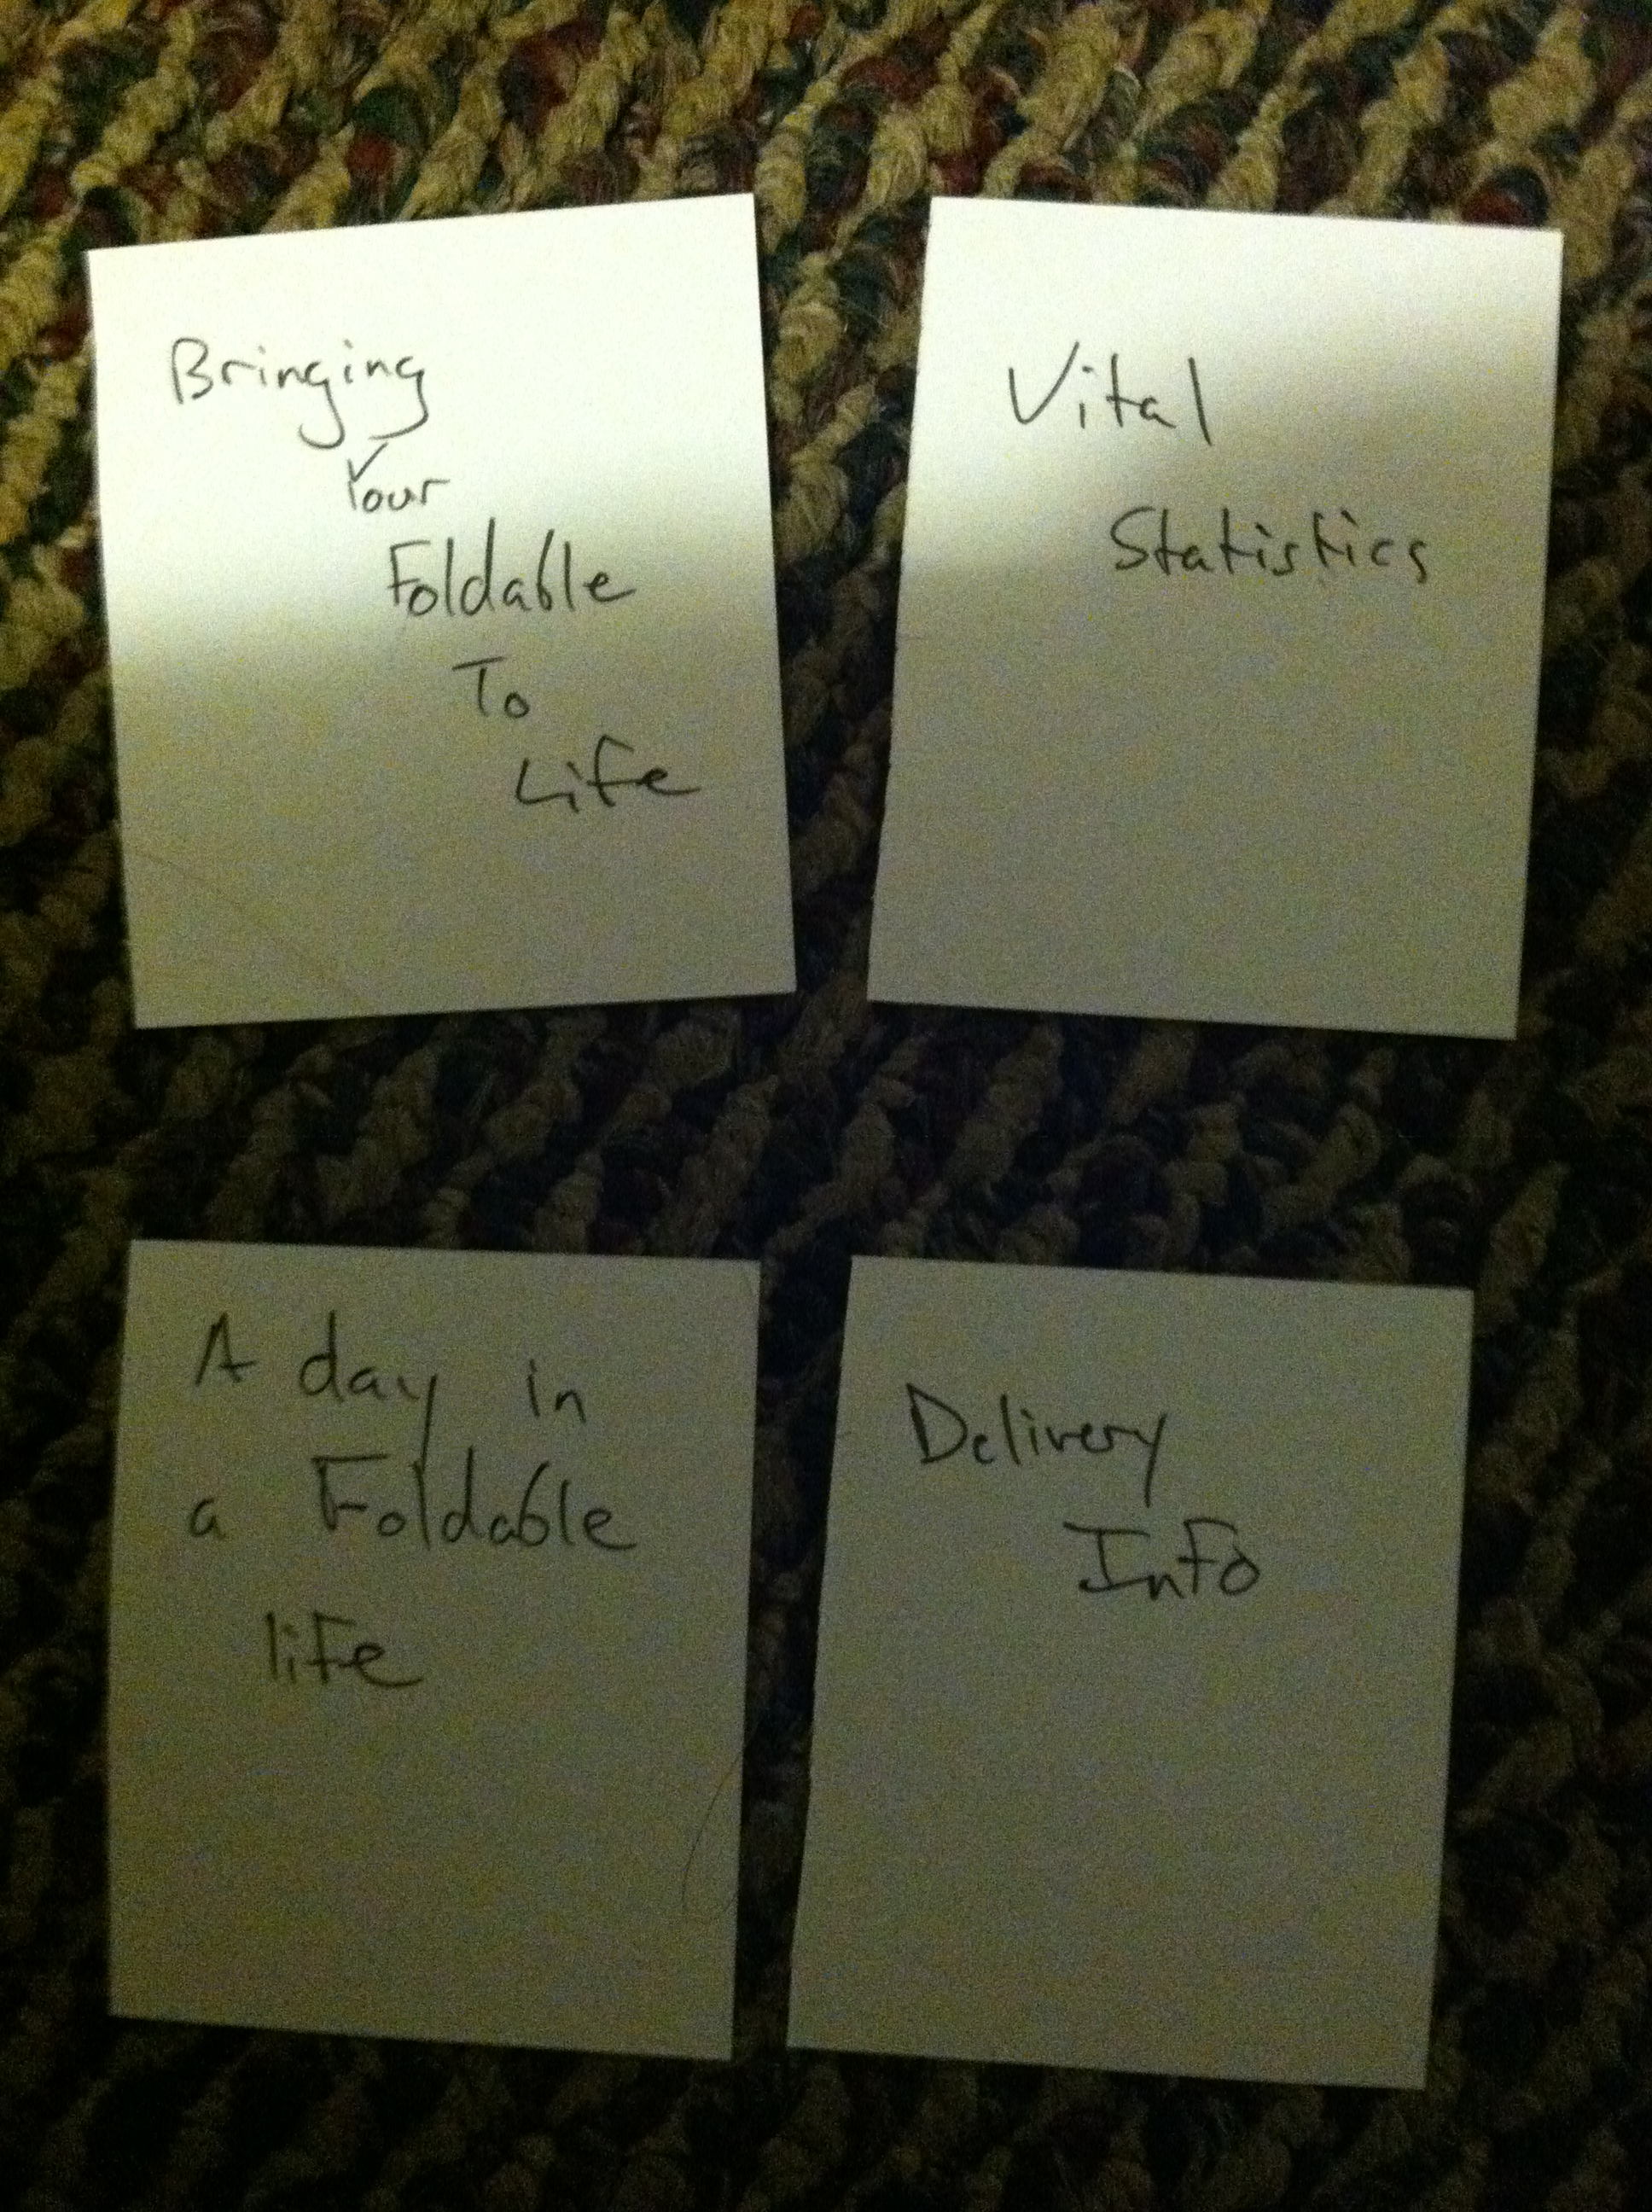 Bringing
Your
Foldable
To
Life
Vital
Statistics
A day in
a Foldable
life
Delivery
Info